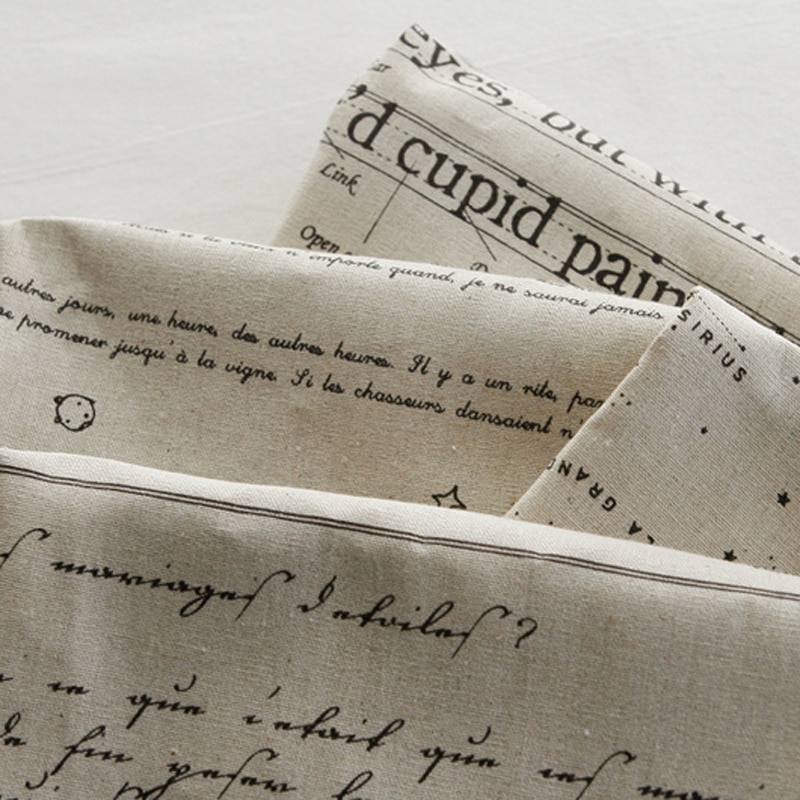 eyes, but with
'd cupid pain
Link
Open
n'importe quand, je ne saurai jamais
SIRIUS
autres jours, une heure, des autres heures. Il y a un rite, par
promener jusqu'à la vigne. Si les chasseurs dansaient n'
LA GRAND
mariages detailes ?
ce que c'etait que ces
fin peser